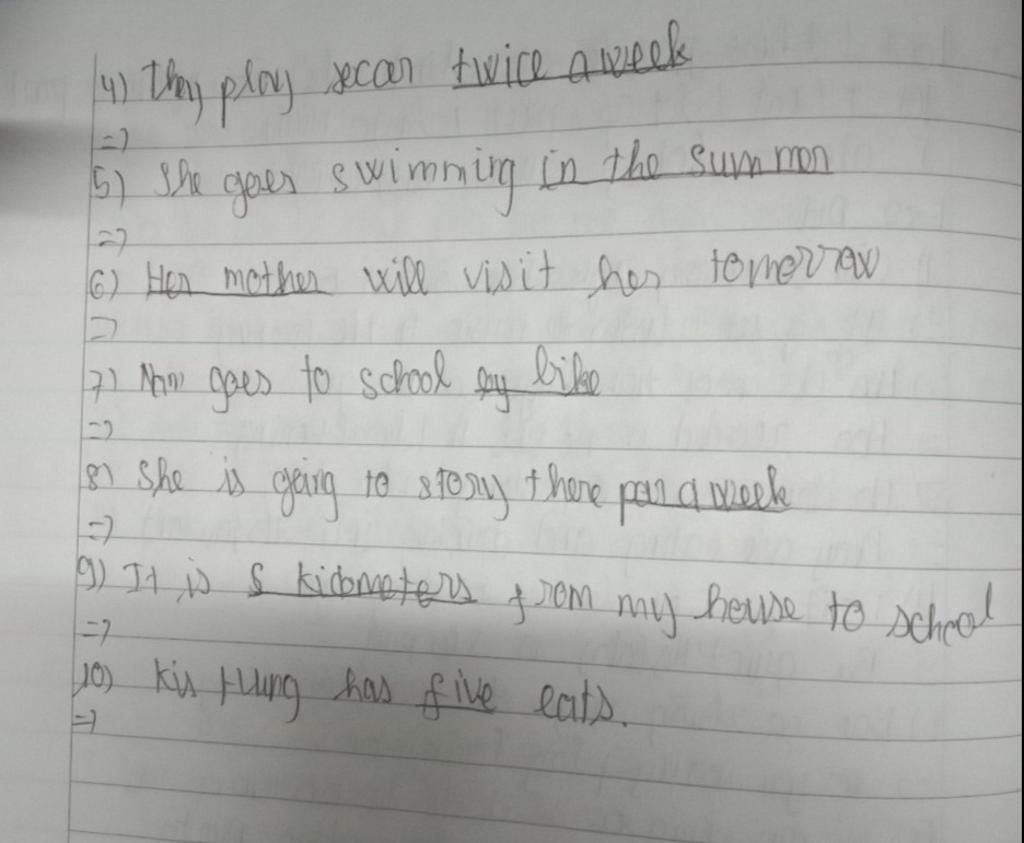 4) They play soccer twice a week
=>
5) She goes swimming in the summer
=>
6) Her mother will visit her tomorrow
=>
7) Nam goes to school by bike
=>
8) She is going to stay there for a week
=>
9) It is 5 kilometers from my house to school
=>
10) has five cats.
=>